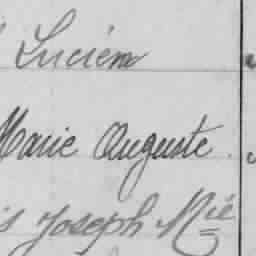 Lucien
Marie Auguste
Joseph Mie